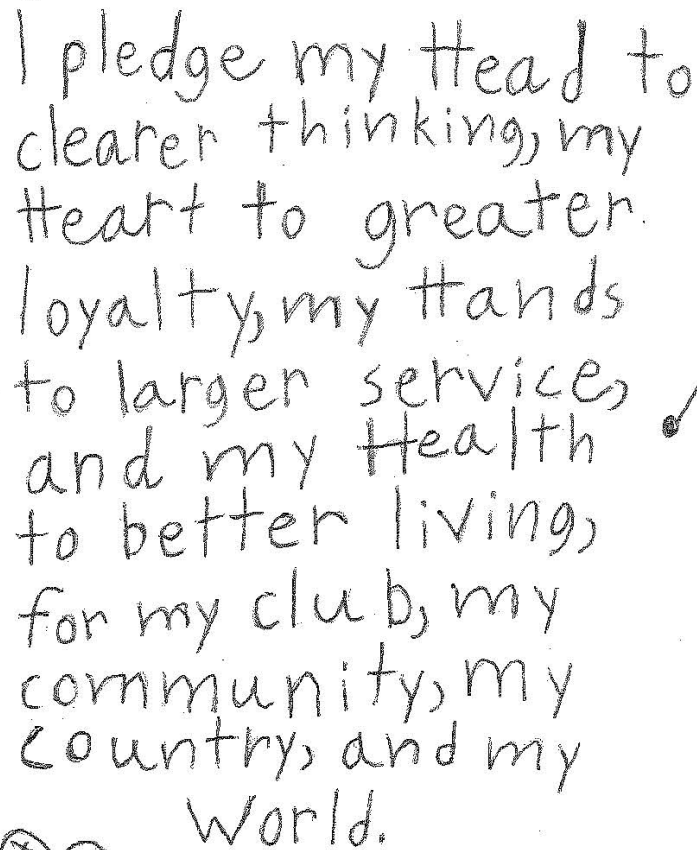 I pledge my Head to
clearer thinking, my
Heart to greater
loyalty, my Hands
to larger service,
and my Health
to better living,
for my club, my
community, my
country, and my
World.